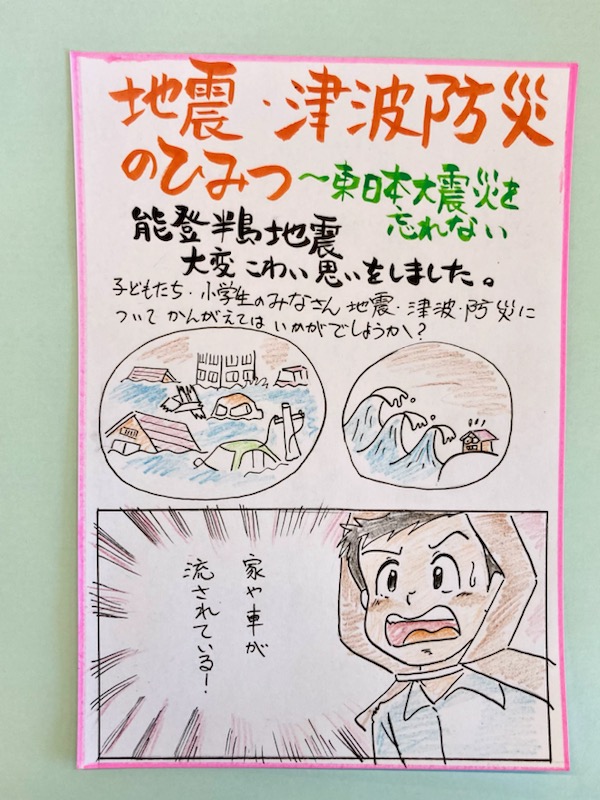 地震・津波防災
のひみつ~東日本大震災を
忘れない
能登半島地震
大変こわい思いをしました。
子どもたち・小学生のみなさん地震・津波・防災に
ついてかんがえてはいかがでしょうか?
家や車が
流されている!